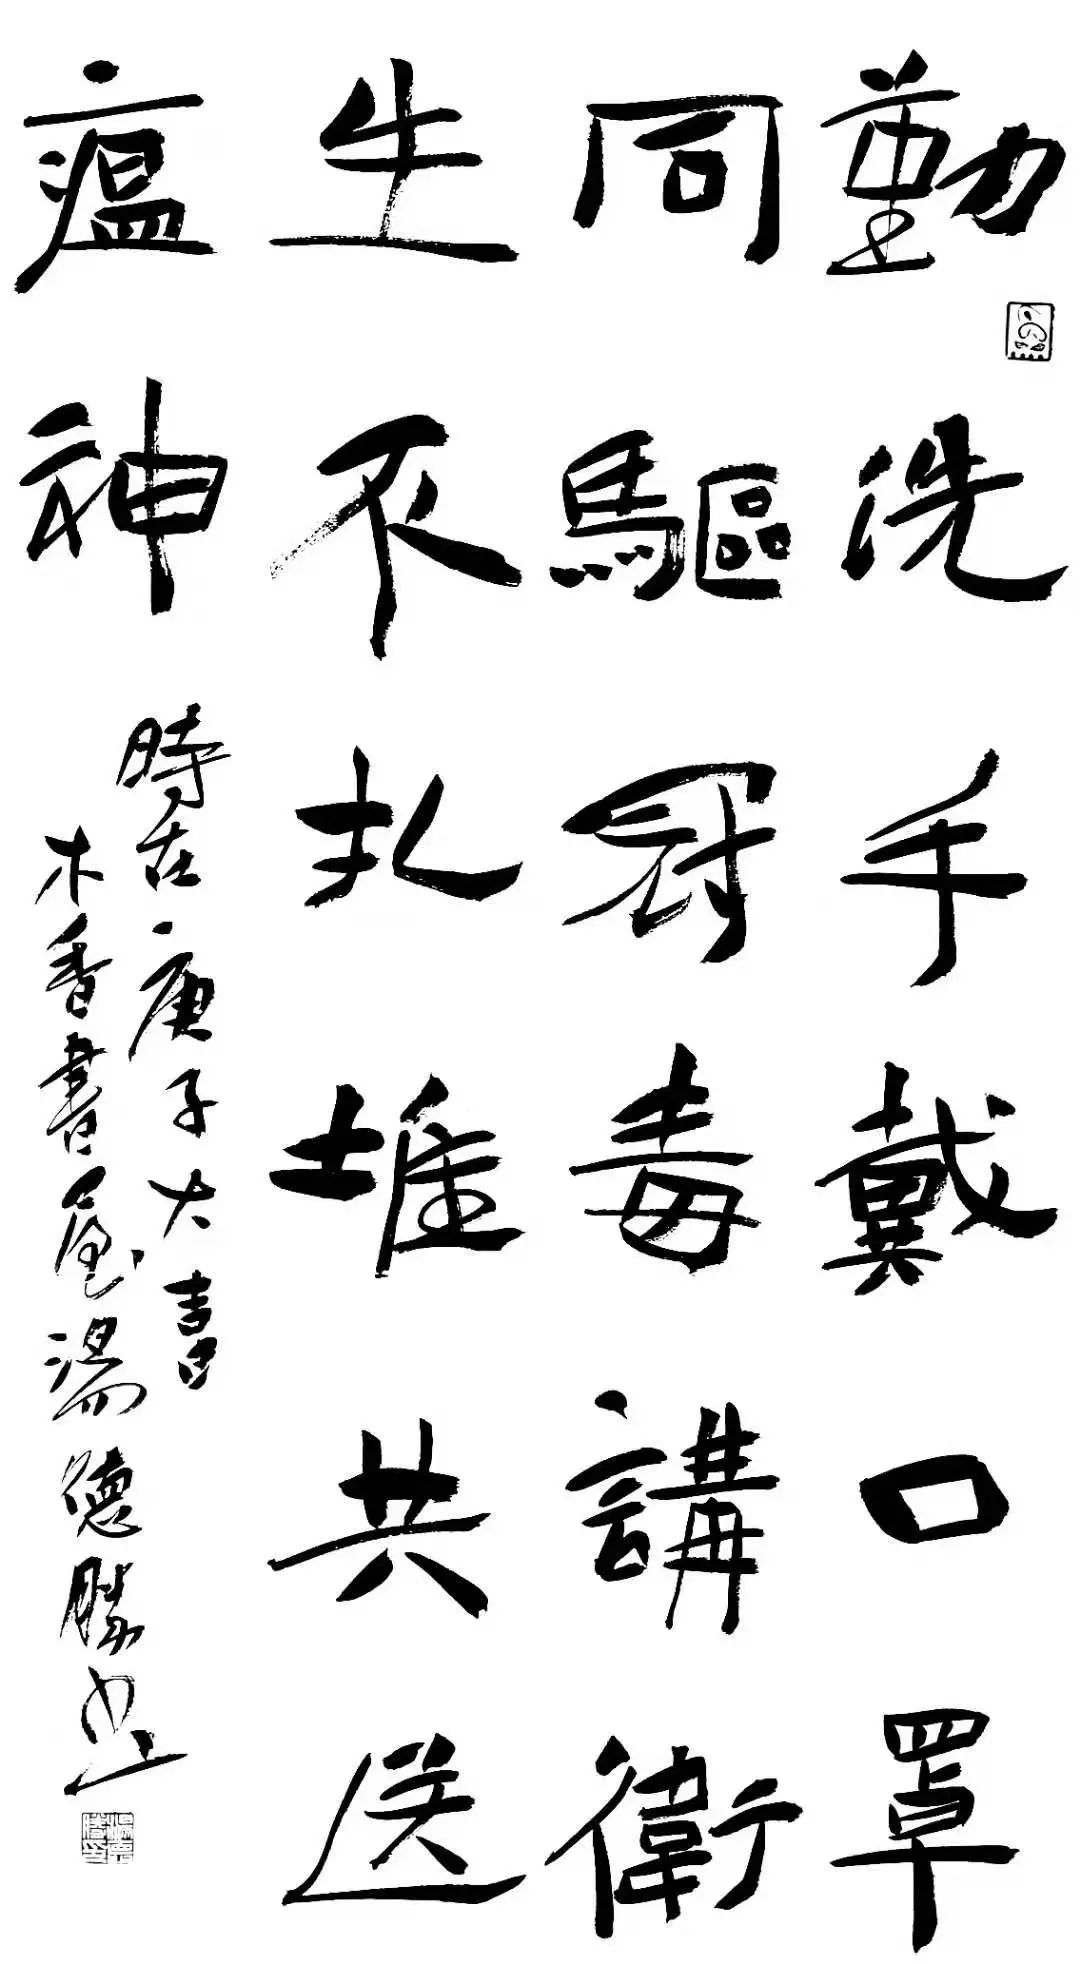 勤洗手戴口罩
同驅冠毒講衛
生不扎堆共送
瘟神
時在庚子大寒書
木香書屋湯德勝